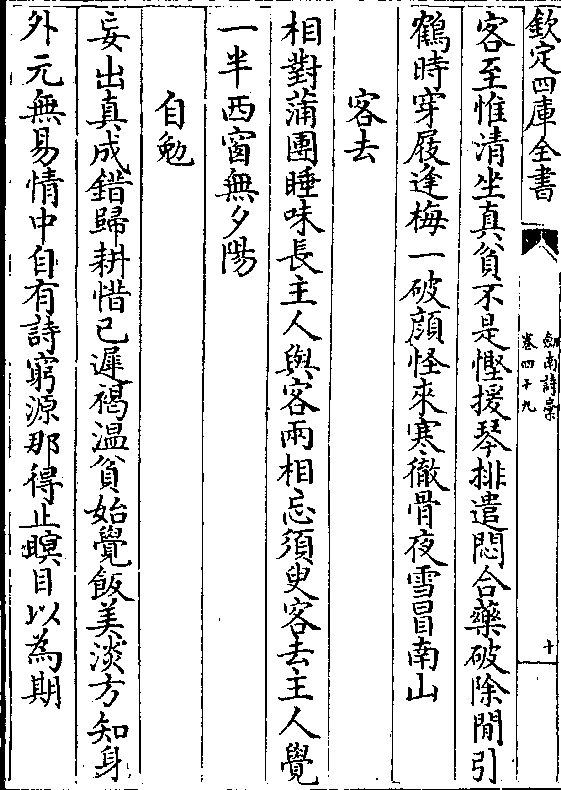 欽定四庫全書
劔南詩稾
卷四十九
十
客至惟清坐真貧不是慳援琴排遣悶合藥破除閒引
鶴時穿屐逢梅一破顔怪來寒徹骨夜雪冒南山
客去
相對蒲團睡味長主人與客兩相忘須臾客去主人覺
一半西窗無夕陽
自勉
妄出真成錯歸耕惜已遲褐温貧始覺飯美淡方知身
外元無易情中自有詩窮源那得止瞑目以為期